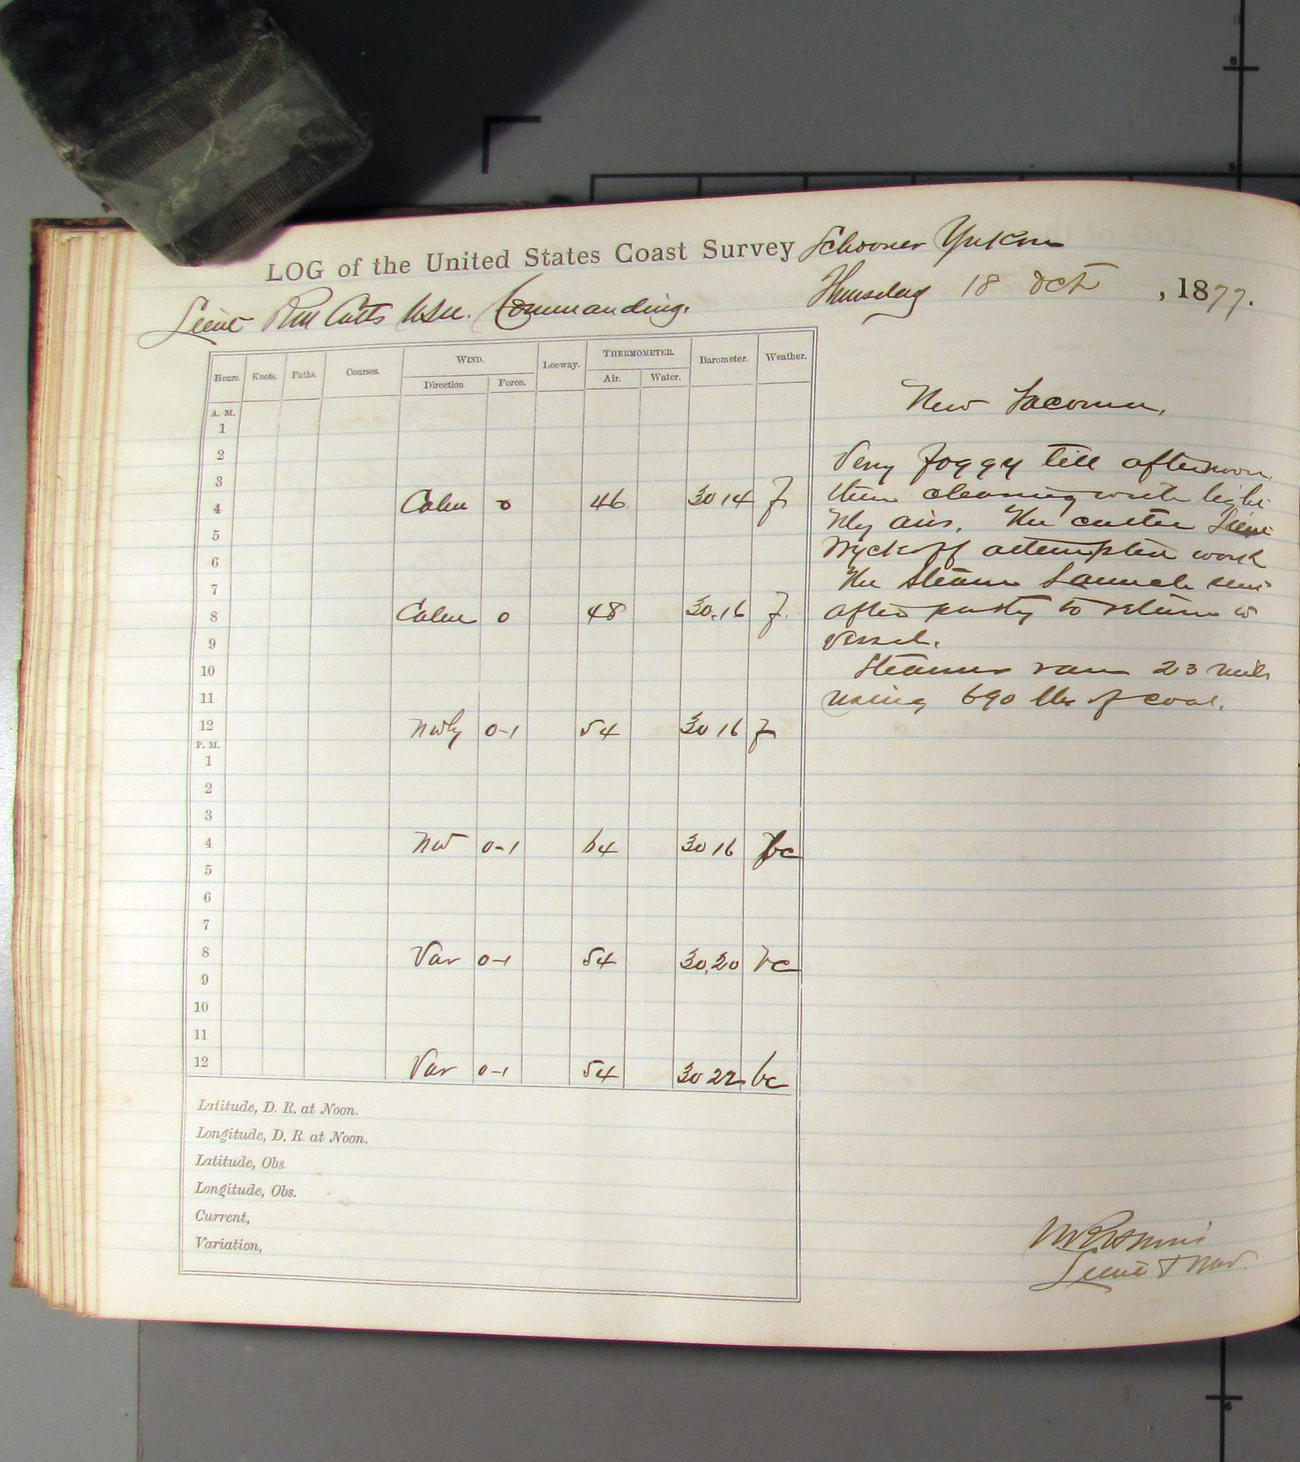 LOG of the United States Coast Survey Schooner Yukon
Lieut R M Cutts USN. Commanding. Thursday 18 Oct, 1877.
Hours. Knots. Faths. Courses. WIND. Leeway. THERMOMETER. Barometer. Weather.
Direction Force. Air. Water.
A. M.
1
2
3
4 Calm 0 46 30 14 f
5
6
7
8 Calm 0 48 30.16 f.
9
10
11
12 Nwly 0-1 54 30 16 f
P. M.
1
2
3
4 NW 0-1 64 30 16 bc
5
6
7
8 Var 0-1 54 30.20 bc
9
10
11
12 Var 0-1 54 30 22 bc
Latitude, D. R. at Noon.
Longitude, D. R. at Noon.
Latitude, Obs.
Longitude, Obs.
Current,
Variation,
New Tacoma,
Very foggy till afternoon
then clearing with light
Nly airs. The cutter Lieut
Wyckoff attempted work
The Steam Launch sent
after party to return to
vessel.
Steamer ran 23 miles
using 690 lbs of coal.
Lieut & Nav.